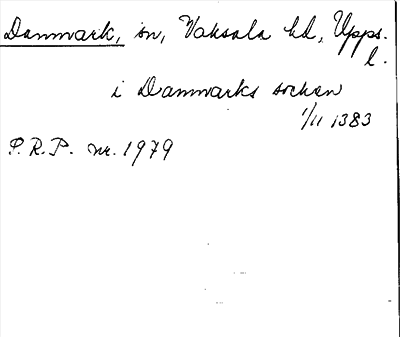 Danmark, sn, Vaksala hd, Upps.
l.
i Danmarks sochan
1/11 1383
P.R.P. nr. 1979